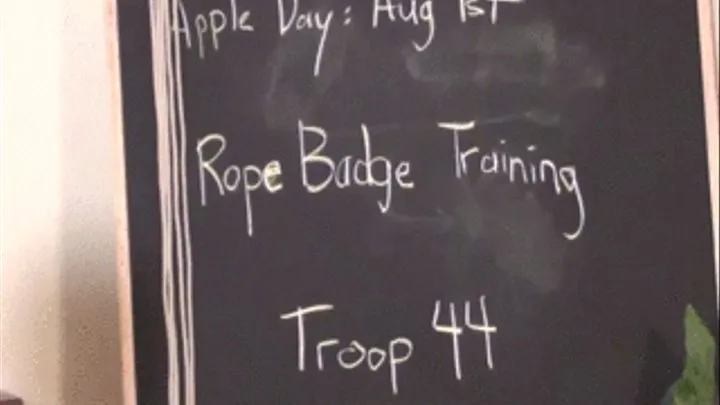 Apple Day: Aug 1st
Rope Badge Training
Troop 44